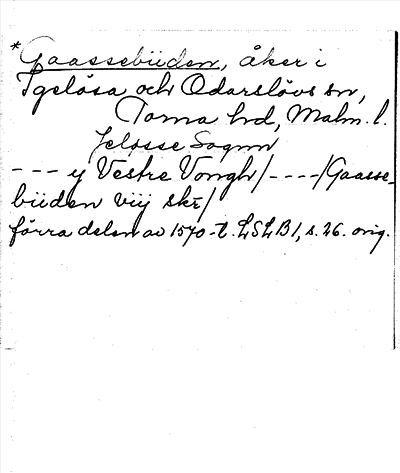 *Gaassebüden, åker i
Igelösa och Odarslövs sn,
Torna hd, Malm. l.
Jelösse Sognn
--- y Vestre Vongh/----/Gaasse-
büden viij skr/
förra delen av 1570-t. LSLB1, s. 26. orig.